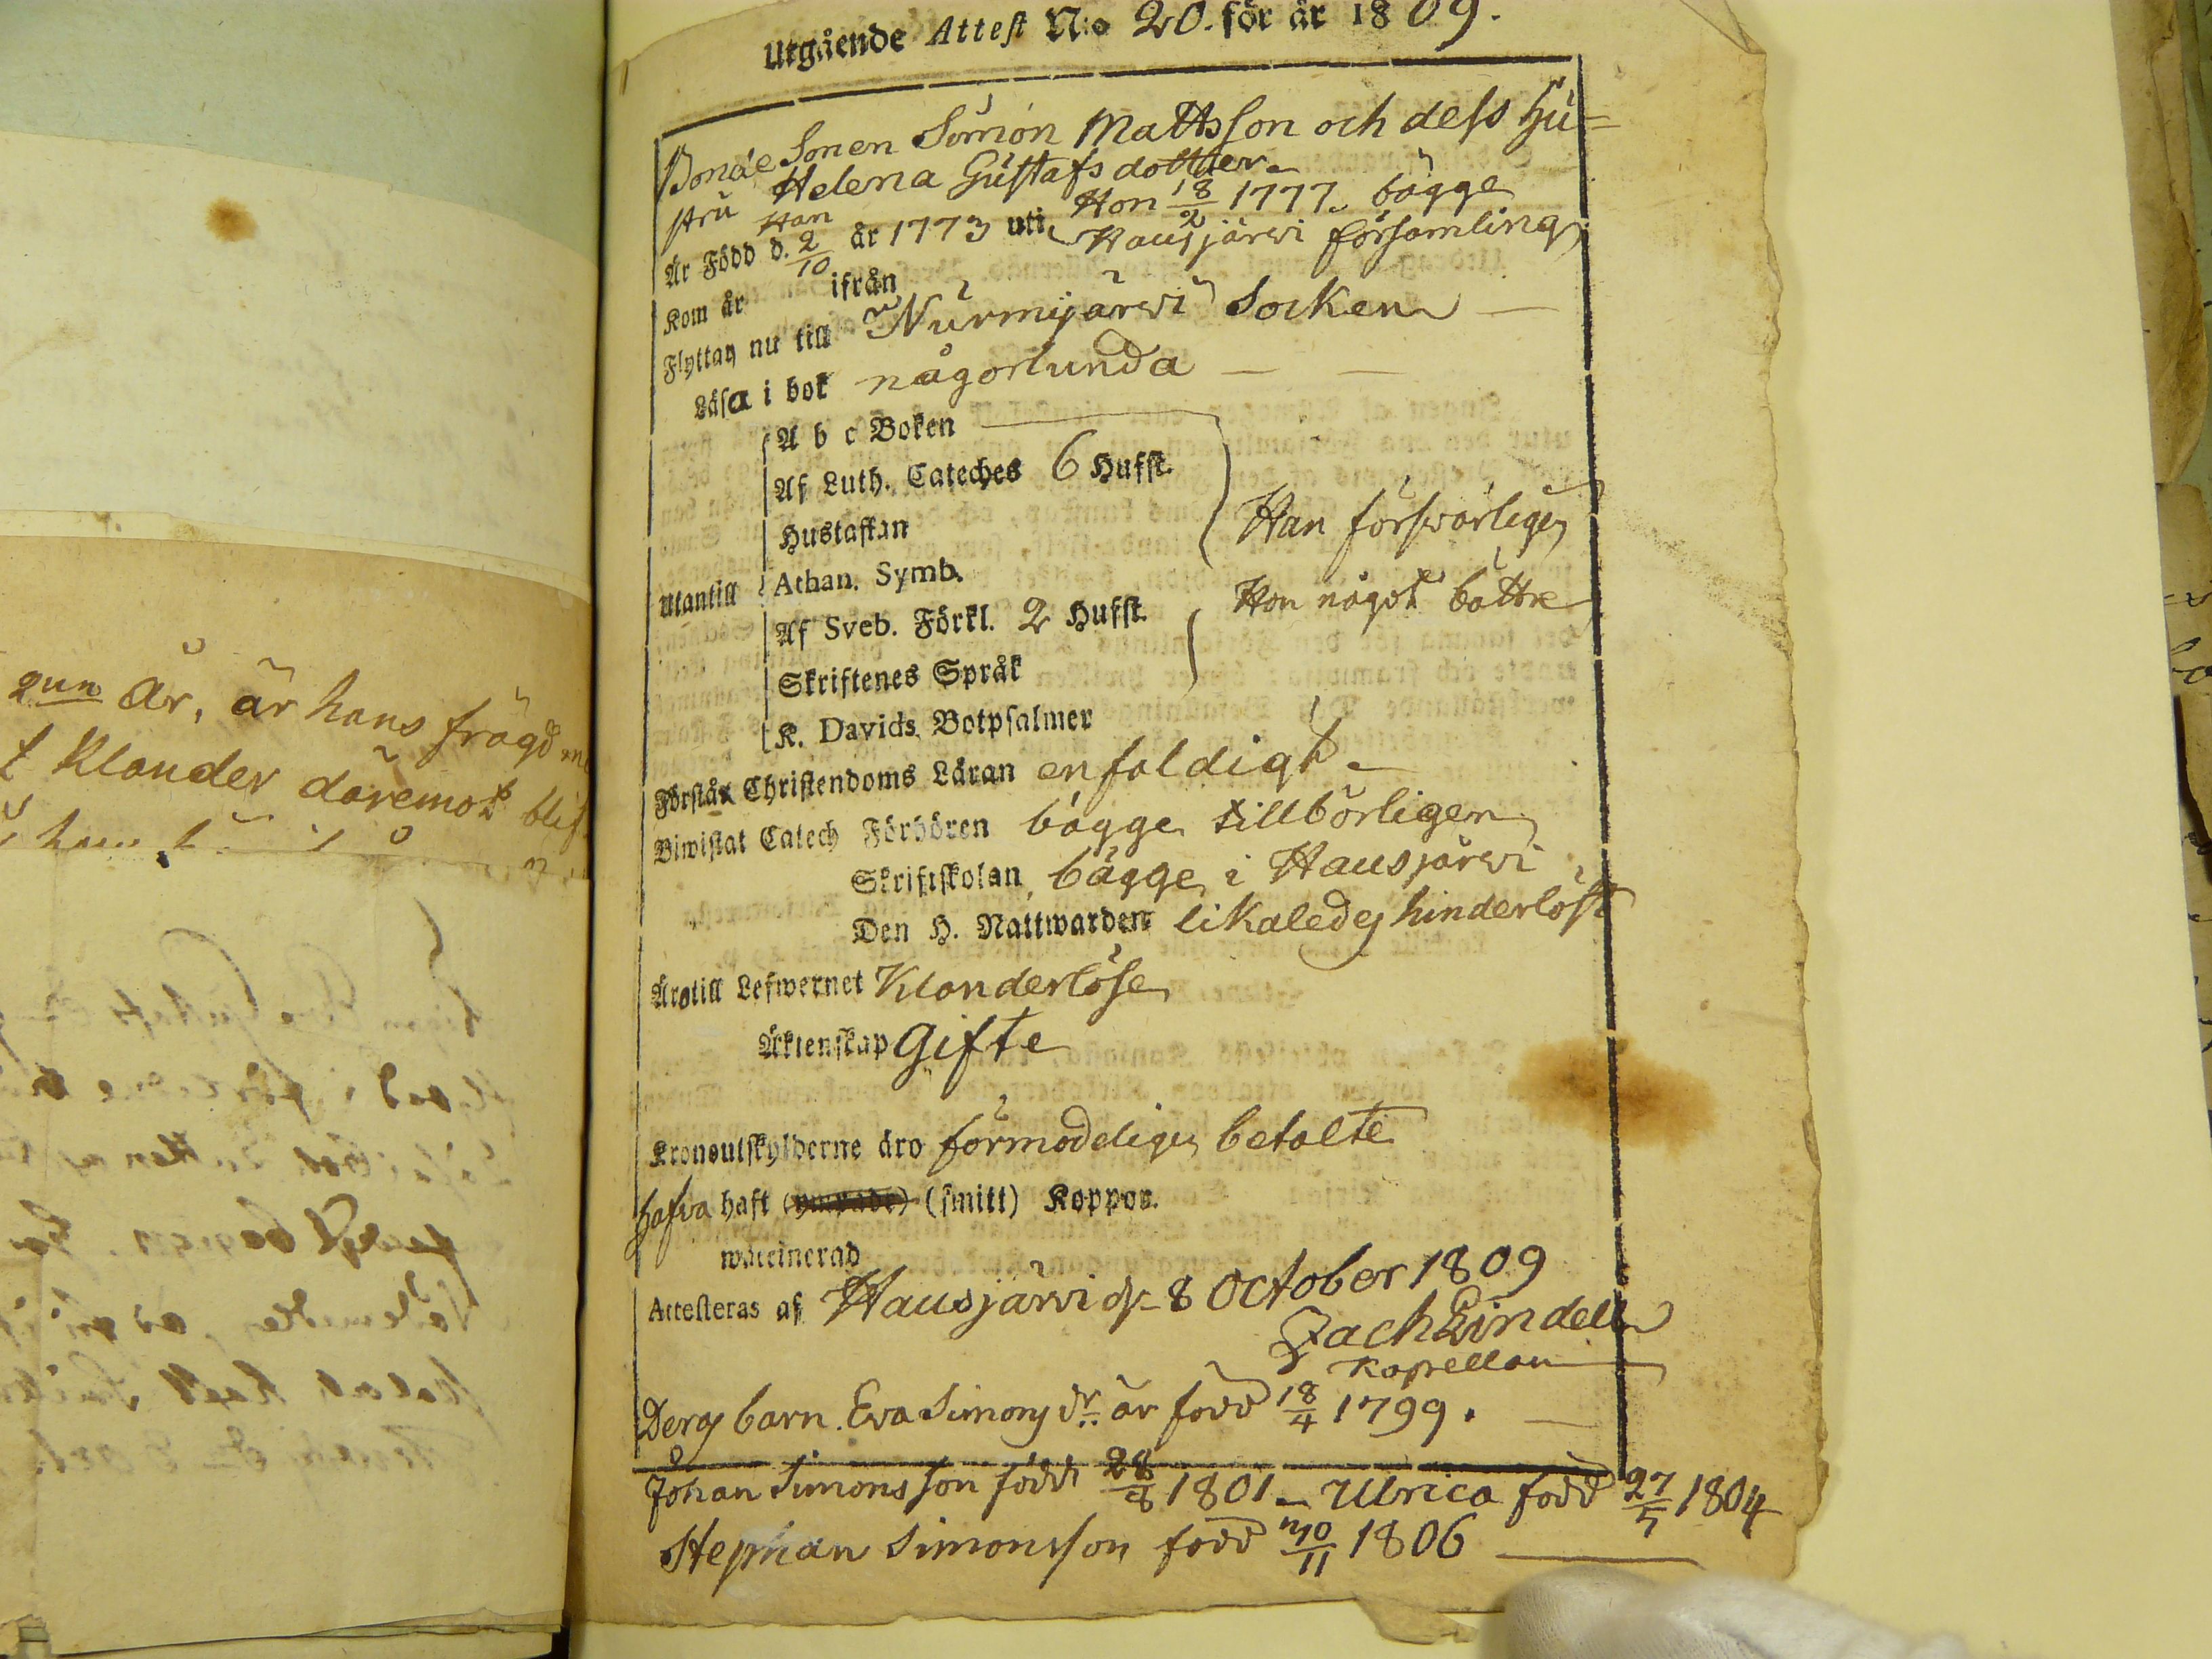 Utgående Attest N:o 20. för år 1809.
Bonde Sonen Simon Mattsson och dess Hu=
stru Helena Gustafsdotter
Han Hon 18/2 1777 bägge
Är Född d. 2/10 år 1773 uti Hausjärwi församling
Kom år ifrån
Flyttar nu till Nurmijärwi Socken —
Läsa i bok någorlunda — —
A b c Boken
Af Luth. Cateches 6 Hufst.
Hustaflan
Han förswarligen
Utantill Athan. Symb.
Hon något bättre
Af Sveb. Förkl. 2 Hufst.
Skriftenes Språk
K. Davids Botpsalmer
Förstå Christendoms Läran enfaldigt
Biwistat Catech Förhören bägge tillbörligen
Skriftskolan bägge i Hausjärwi
Den H. Nattwarden likaledes hinderlöst
Äro till Lefwernet Klanderlöse
Äktenskap Gifte
Kronoutskylderne äro förmodeligen betalte
hafva haft (smitt) Koppor.
waccinerad
Attesteras af Hausjärwi d. 8 October 1809
Zach Lindell
Kapellan
Deras barn. Eva Simons dr. är född 18/4 1799. —
Johan Simonsson född 28/8 1801 — Ulrica född 27/5 1804
Stephan Simonsson född 10/11 1806 —
qun år, är hans frägd
t Klander däremot blif